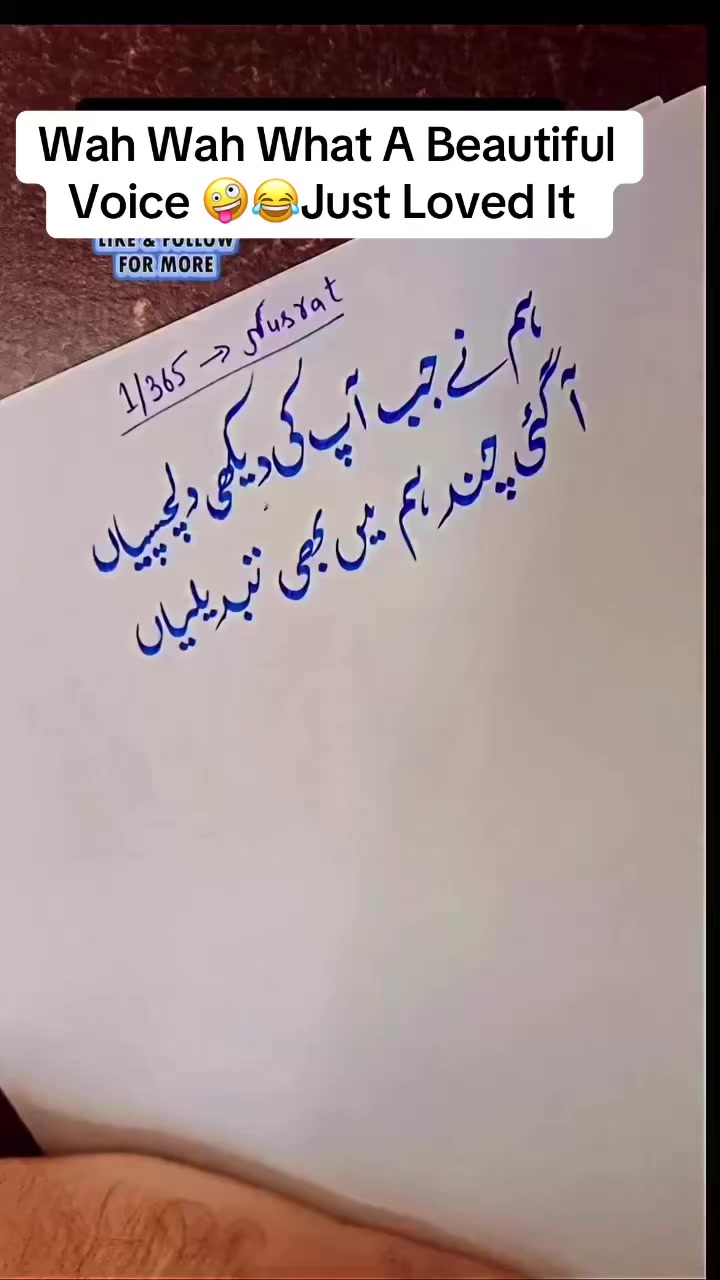 Wah Wah What A Beautiful
Voice 🤪😂Just Loved It
LIKE & FOLLOW
FOR MORE
1/365 → Nusrat
ہم نے جب آپ کی دیکھی دلچسپیاں
آ گئی چند ہم میں بھی تبدیلیاں